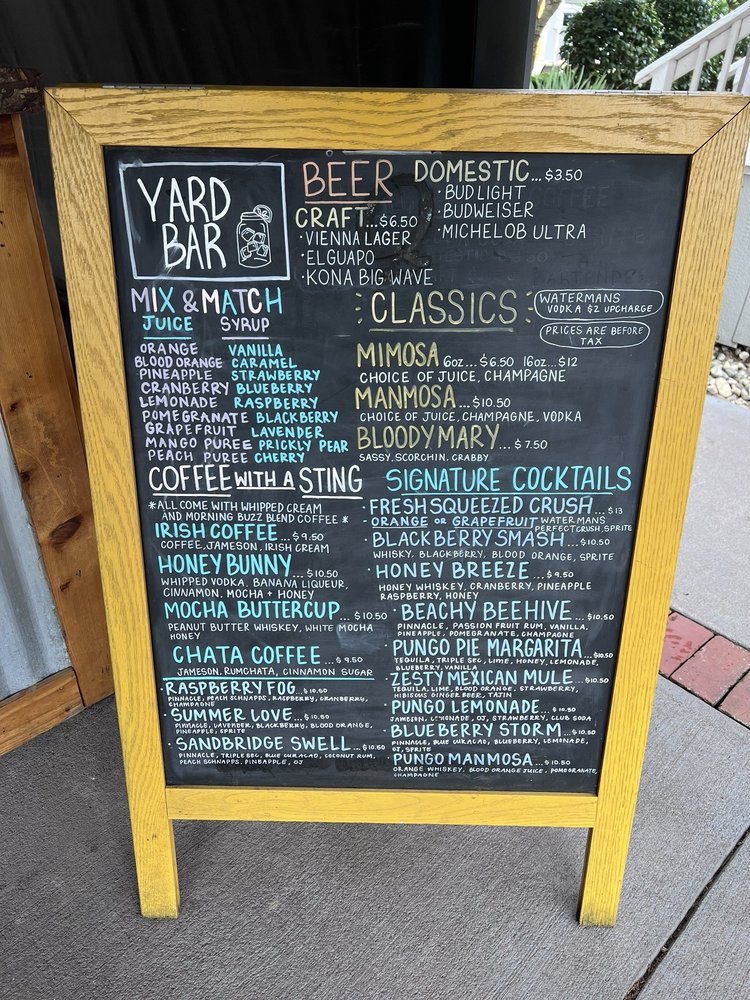 YARD
BAR
BEER
CRAFT...$6.50
·VIENNA LAGER
·ELGUAPO
·KONA BIG WAVE
DOMESTIC...$3.50
·BUD LIGHT
·BUDWEISER
·MICHELOB ULTRA
MIX & MATCH
JUICE SYRUP
ORANGE VANILLA
BLOOD ORANGE CARAMEL
PINEAPPLE STRAWBERRY
CRANBERRY BLUEBERRY
LEMONADE RASPBERRY
POMEGRANATE BLACKBERRY
GRAPEFRUIT LAVENDER
MANGO PUREE PRICKLY PEAR
PEACH PUREE CHERRY
CLASSICS
WATERMANS
VODKA $2 UPCHARGE
PRICES ARE BEFORE
TAX
MIMOSA 6oz...$6.50 16oz...$12
CHOICE OF JUICE, CHAMPAGNE
MANMOSA...$10.50
CHOICE OF JUICE, CHAMPAGNE, VODKA
BLOODY MARY...$7.50
SASSY, SCORCHIN, CRABBY
COFFEE WITH A STING
*ALL COME WITH WHIPPED CREAM
AND MORNING BUZZ BLEND COFFEE *
IRISH COFFEE...$9.50
COFFEE, JAMESON, IRISH CREAM
HONEY BUNNY...$10.50
WHIPPED VODKA, BANANA LIQUEUR,
CINNAMON, MOCHA + HONEY
MOCHA BUTTERCUP...$10.50
PEANUT BUTTER WHISKEY, WHITE MOCHA
HONEY
CHATA COFFEE...$9.50
JAMESON, RUMCHATA, CINNAMON SUGAR
·RASPBERRY FOG...$10.50
PINNACLE, PEACH SCHNAPPS, RASPBERRY, CRANBERRY,
CHAMPAGNE
·SUMMER LOVE...$10.50
PINNACLE, LAVENDER, BLACKBERRY, BLOOD ORANGE,
PINEAPPLE, SPRITE
·SANDBRIDGE SWELL...$10.50
PINNACLE, TRIPLE SEC, BLUE CURACAO, COCONUT RUM,
PEACH SCHNAPPS, PINEAPPLE, OJ
SIGNATURE COCKTAILS
·FRESH SQUEEZED CRUSH...$13
-ORANGE OR GRAPEFRUIT WATERMANS
PERFECT CRUSH, SPRITE
·BLACKBERRY SMASH...$10.50
WHISKY, BLACKBERRY, BLOOD ORANGE, SPRITE
·HONEY BREEZE...$9.50
HONEY WHISKEY, CRANBERRY, PINEAPPLE
RASPBERRY, HONEY
·BEACHY BEEHIVE...$10.50
PINNACLE, PASSION FRUIT RUM, VANILLA,
PINEAPPLE, POMEGRANATE, CHAMPAGNE
·PUNGO PIE MARGARITA...$10.50
TEQUILA, TRIPLE SEC, LIME, HONEY, LEMONADE,
BLUEBERRY, VANILLA
·ZESTY MEXICAN MULE...$10.50
TEQUILA, LIME, BLOOD ORANGE, STRAWBERRY,
HIBISCUS GINGER BEER, TAJIN
·PUNGO LEMONADE...$10.50
JAMESON, LEMONADE, OJ, STRAWBERRY, CLUB SODA
·BLUEBERRY STORM...$10.50
PINNACLE, BLUE CURACAO, BLUEBERRY, LEMONADE,
OJ, SPRITE
·PUNGO MANMOSA...$10.50
ORANGE WHISKEY, BLOOD ORANGE JUICE, POMEGRANATE,
CHAMPAGNE